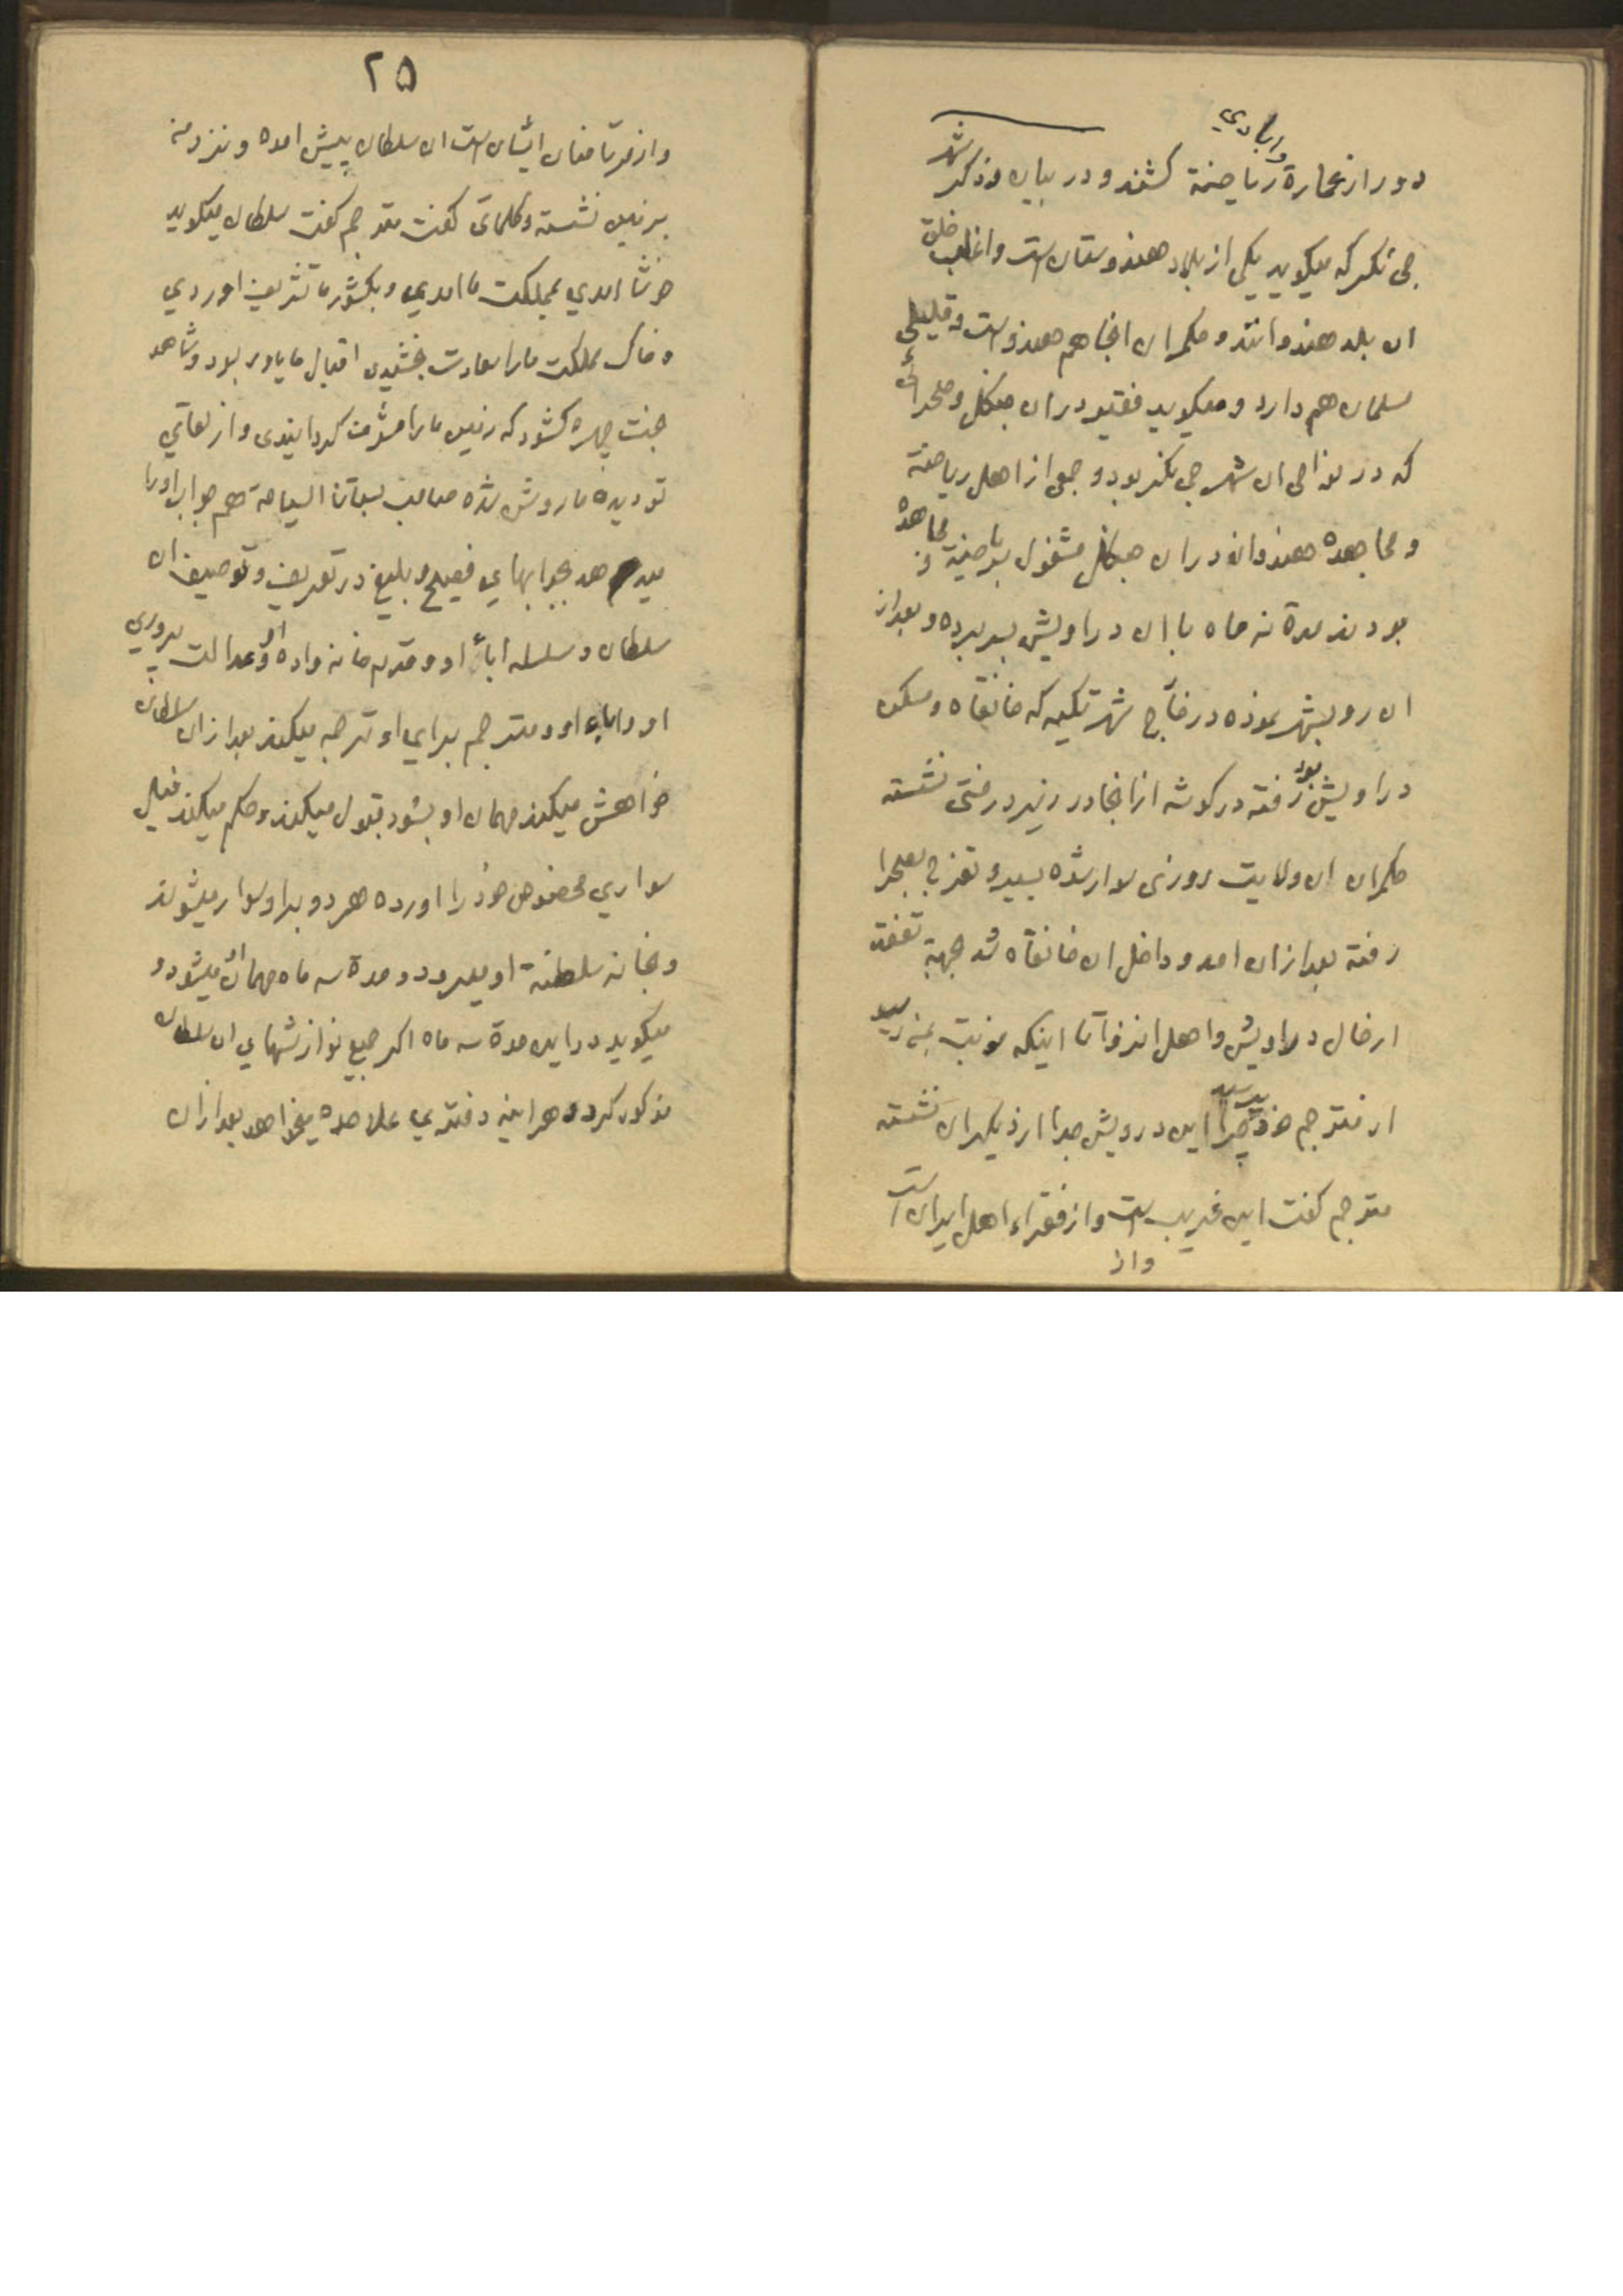 وابادي
دور از عمارة رياضة كشند و در بيان و ذكر شهر
جي نكر كه ميكويد يكى از بلاد هندوستان است واغلب خلق
ان بلد هندوانند و حكمران انجا هم هندو است و قليلى
مسلمان هم دارد و ميكويد فقير در ان جنكل و صحرائى
كه در نواحى ان شهر جى نكر بود و جمعى از اهل رياضة
و مجاهده هندوانه در ان جنكل مشغول برياضة و مجاهده
بودند مدة نه ماه با ان دراويش بسر برده و بعد از
ان رو بشهر نموده در خارج شهر تكيه كه خانقاه و مسكن
دراويش بود رفته در كوشه از انجا در زير درختى نشسته
حكمران ان ولايت روزى سوار شده بسير و تفرج بصحرا
رفته بعد از ان امد و داخل ان خانقاه شد جهة تفقد
از حال دراويش و اهل انزوا تا اينكه نوبت بمن رسيد
از مترجم خود پرسيد چرا اين درويش جدا از ديكران نشسته
مترجم كفت اين غريب است و از فقراء اهل ايران است
واز
٢٥
واز مرتاضان ايشان است ان سلطان پيش امده و نزد من
بر زمين نشسته و كلماتى كفت مترجم كفت سلطان ميكويد
خوش امدي بمملكت ما امدي و بكشور ما تشريف اوردي
و خاك مملكت ما را سعادت بخشيدى اقبال ما ياور بود و شاهد
بخت چهره كشود كه زمين ما را مشرف كردانيدى و از لقاى
تو ديده ما روشن شده صاحب بستان السياحة هم جواب او را
ميدهد بجوابهاي فصيح و بليغ در تعريف و توصيف ان
سلطان و سلسله اباء او و قدم خانواده او و عدالت پروري
او و اباء او و مترجم براي او ترجمه ميكند بعد از ان سلطان
خواهش ميكند مهمان او بشود قبول ميكند و حكم ميكند فيل
سواري مخصوص خود را اورده هر دو بر او سوار ميشوند
و بخانه سلطنة او ميرود و مدة سه ماه مهمان او ميشود و
ميكويد در اين مدة سه ماه اكر جميع نوازشهاي ان سلطان
مذكور كردد هر اينه دفتري علاحده ميخواهد بعد از ان